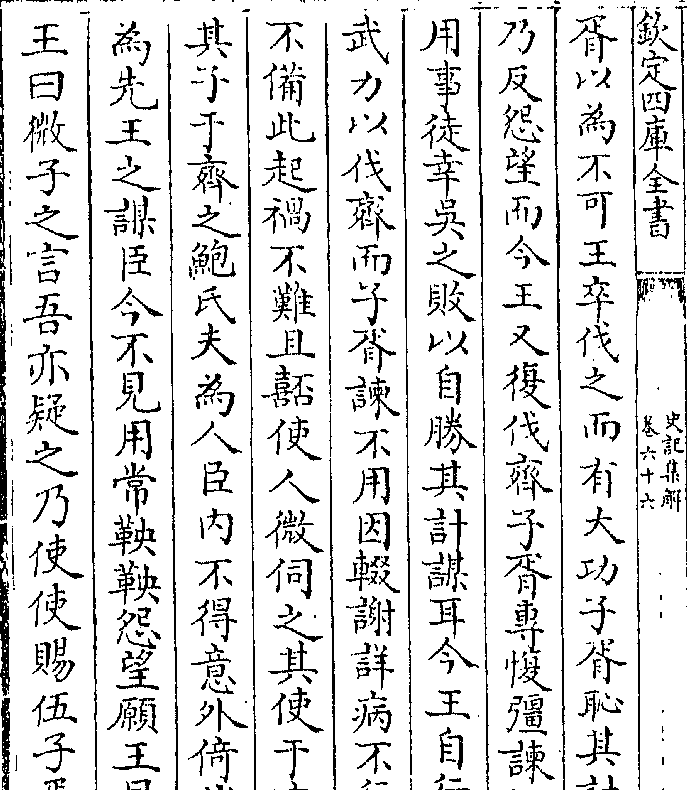 欽定四庫全書
史記集解
卷六十六
胥以為不可王卒伐之而有大功子胥恥其計
乃反怨望而今王又復伐齊子胥專愎彊諫
用事徒幸吳之敗以自勝其計謀耳今王自行
武力以伐齊而子胥諫不用因輟謝詳病不行
不備此起禍不難且嚭使人微伺之其使于
其子于齊之鮑氏夫為人臣內不得意外倚
為先王之謀臣今不見用常鞅鞅怨望願王
王曰微子之言吾亦疑之乃使使賜伍子胥